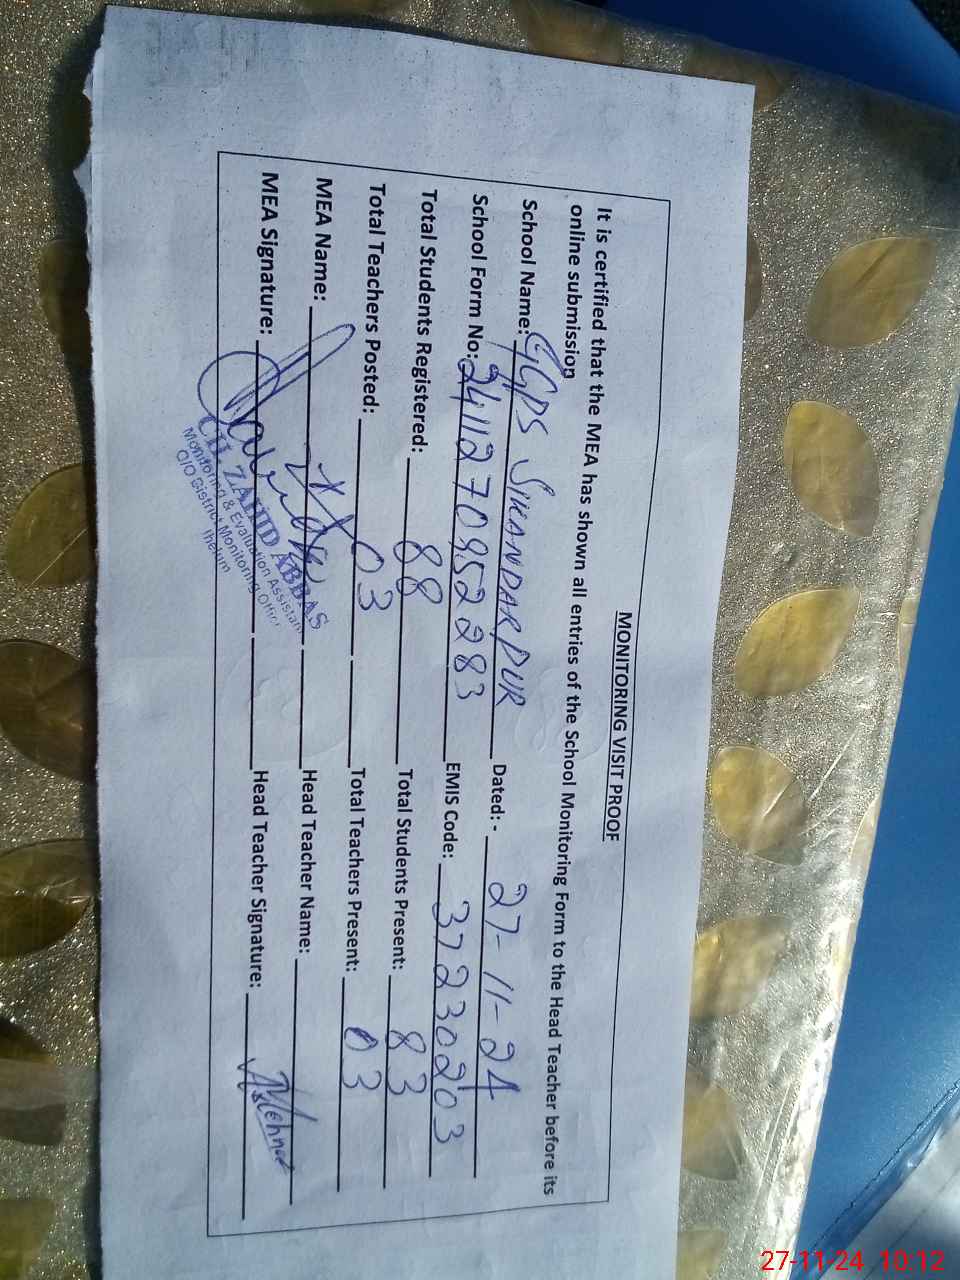 MONITORING VISIT PROOF
It is certified that the MEA has shown all entries of the School Monitoring Form to the Head Teacher before its
online submission
School Name: GGPS SIKANDARPUR Dated:- 27-11-24
School Form No: 2411270952283 EMIS Code: 37230203
Total Students Registered: 88 Total Students Present: 83
Total Teachers Posted: 03 Total Teachers Present: 03
MEA Name: Head Teacher Name:
MEA Signature: Head Teacher Signature:
CH. ZAHID ABBAS
Monitoring & Evaluation Assistant
O/O District Monitoring Officer
Jhelum
27-11-24 10:12